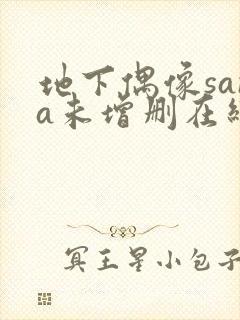 地下偶像sa
a未增删在
冥王星小包子